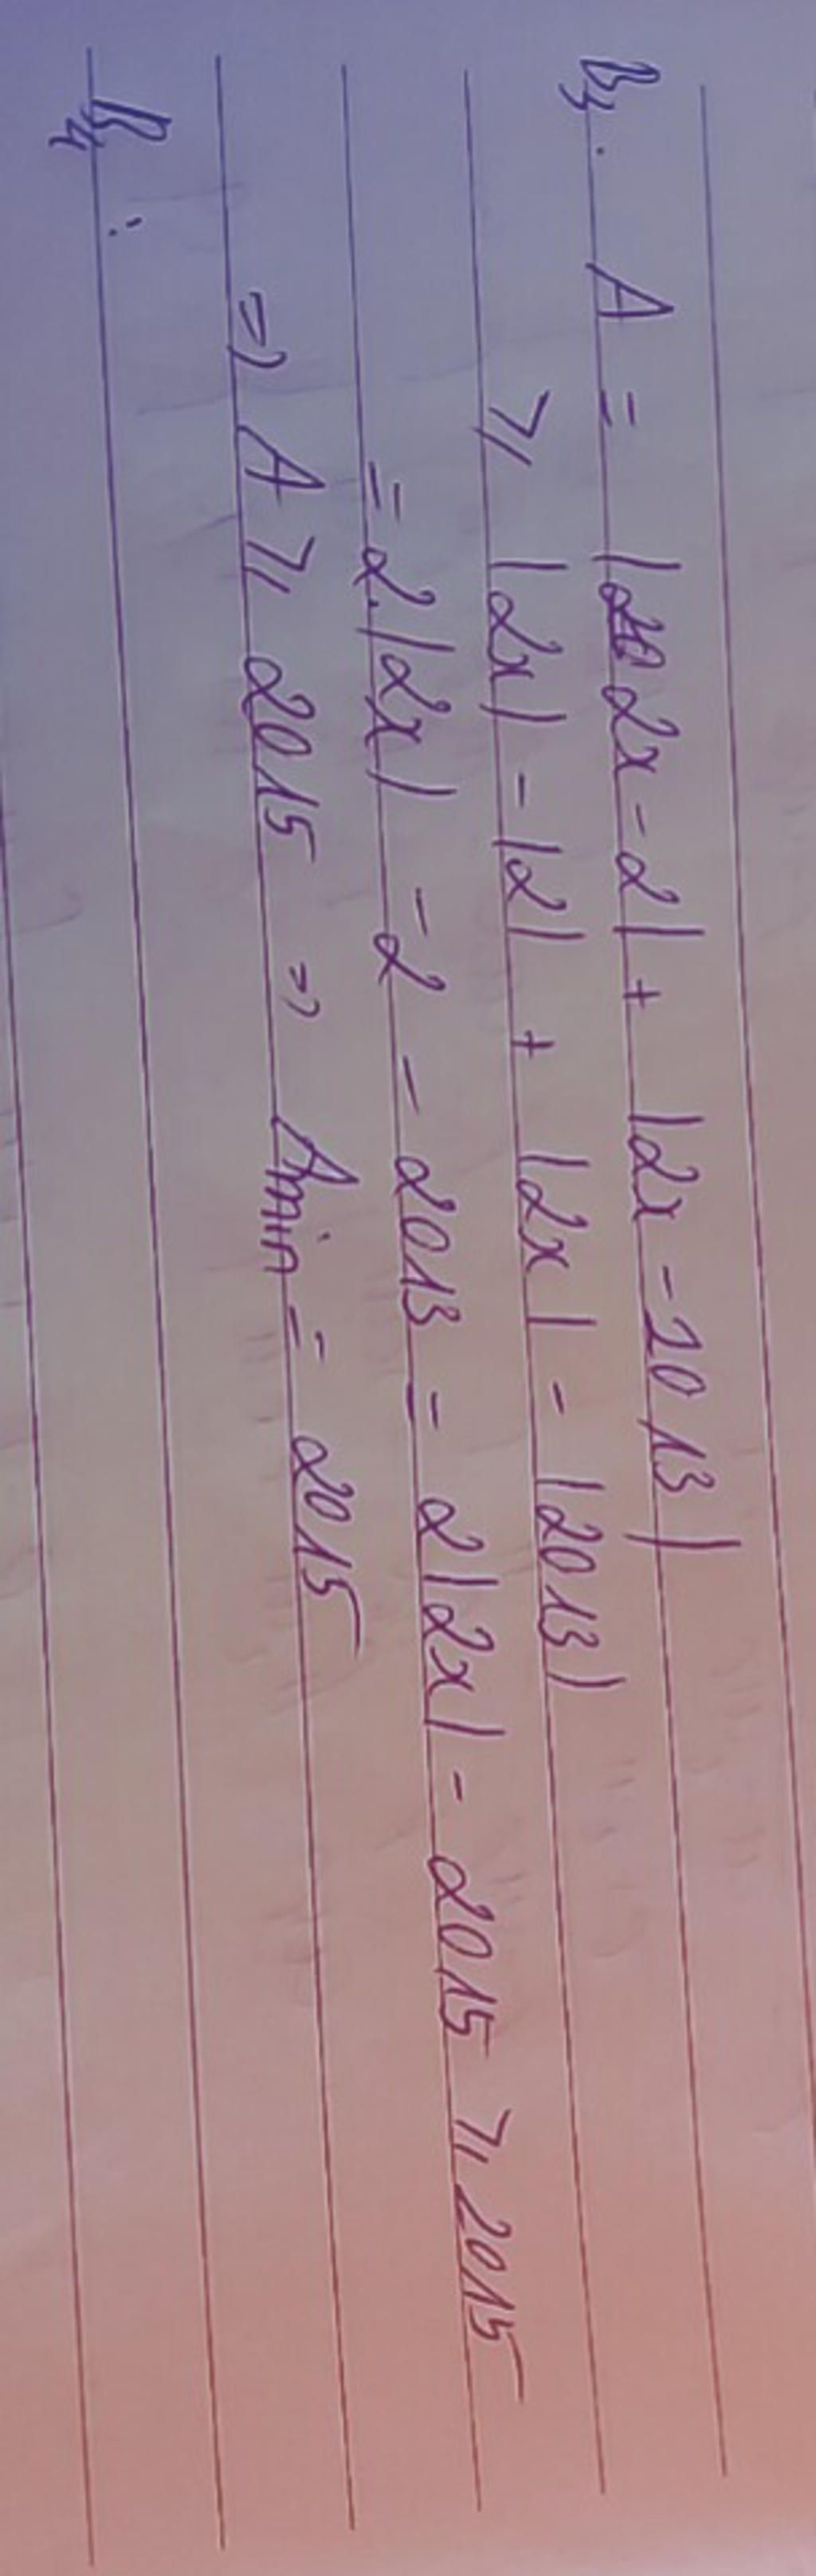 B3. A = |2x - 2| + |2x - 2013|
≥ |2x| - |2| + |2x| - |2013|
= 2.|2x| - 2 - 2013 = 2|2x| - 2015 ≥ 2015
=> A ≥ 2015 => Amin = 2015
B4: